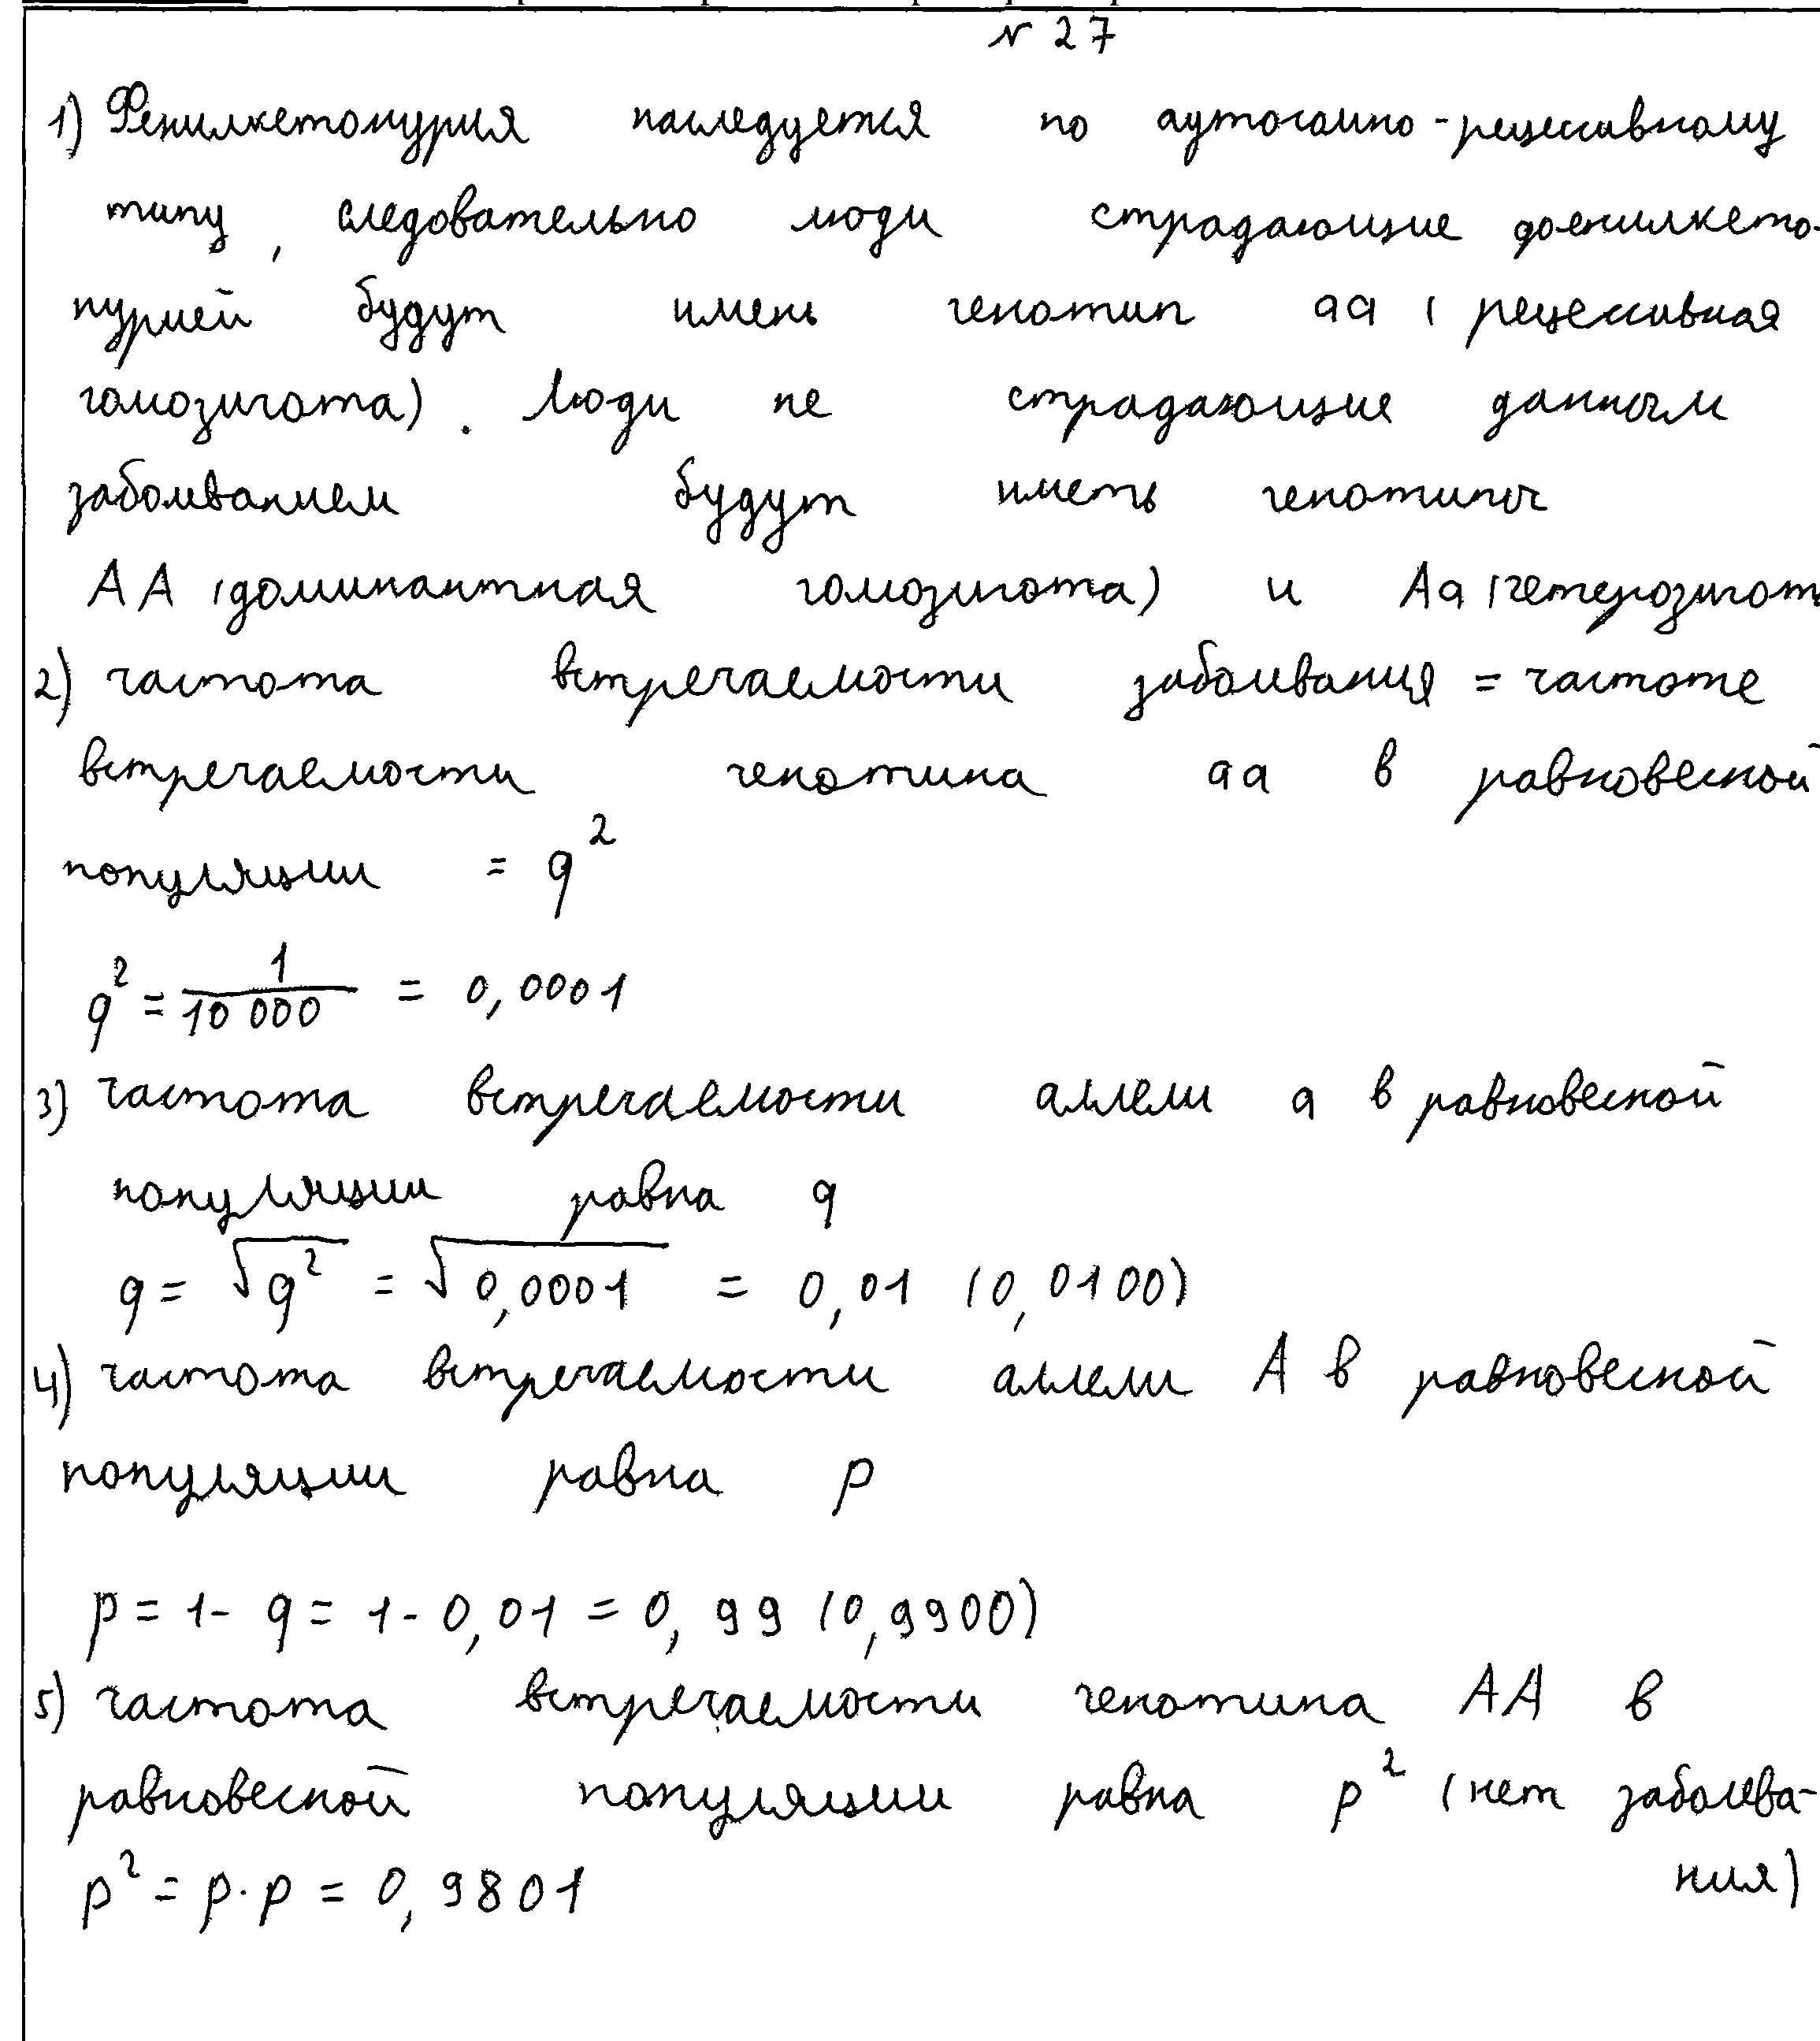 № 27
1) Фенилкетонурия наследуется по аутосомно-рецессивному
типу, следовательно люди страдающие фенилкето-
нурией будут иметь генотип аа (рецессивная
гомозигота). Люди не страдающие данным
заболеванием будут иметь генотипы
АА (доминантная гомозигота) и Аа (гетерозигот
2) частота встречаемости заболевания = частоте
встречаемости генотипа аа в равновесной
популяции = q²
q² = 1/10 000 = 0,0001
3) частота встречаемости аллели а в равновесной
популяции равна q
q = √q² = √0,0001 = 0,01 (0,0100)
4) частота встречаемости аллели А в равновесной
популяции равна p
p = 1 - q = 1 - 0,01 = 0,99 (0,9900)
5) частота встречаемости генотипа АА в
равновесной популяции равна p² (нет заболева-
ния)
p² = p · p = 0,9801